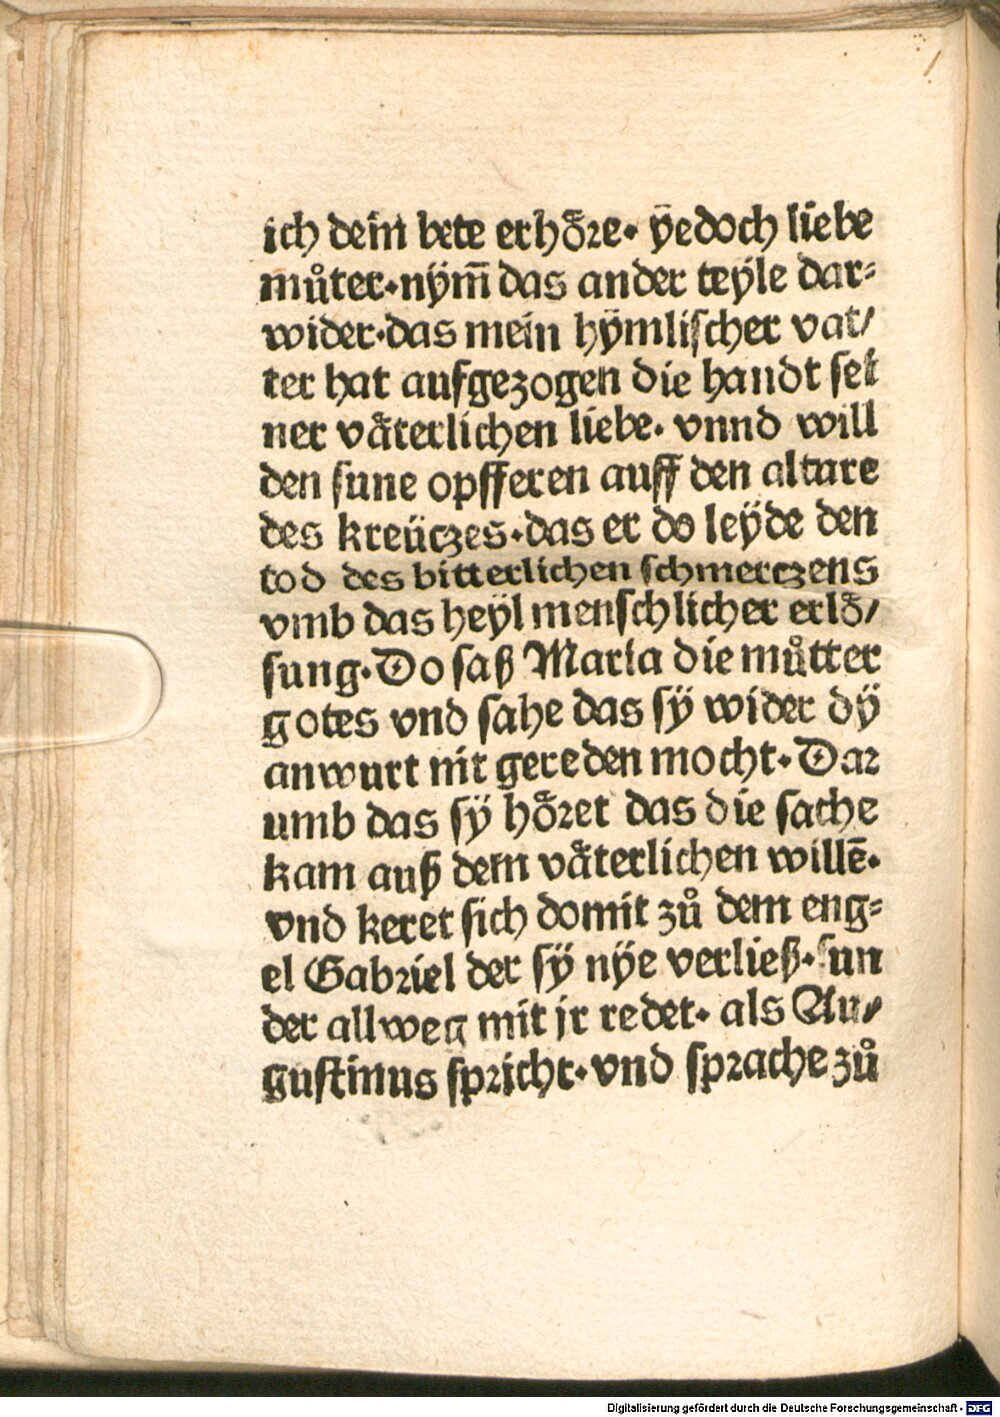 ich dein bete erhoͤre· ÿedoch liebe
muͦter·nÿm̄ das ander teÿle dar⸗
wider·das mein hÿmlischer vat/
ter hat aufgezogen die handt sei
ner vaͤterlichen liebe· vnnd will
den sune opfferen auff den altare
des kreüczes·das er do leÿde den
tod des bitterlichen schmerczens
vmb das heÿl menschlicher erloͤ/
sung·Do saß Maria die muͦtter
gotes vnd sahe das sÿ wider dÿ
anwurt nit gereden mocht·Dar
umb das sÿ hoͤret das die sache
kam auß dem vaͤterlichen willē·
vnd keret sich domit zuͦ dem eng⸗
el Gabriel der sÿ nÿe verließ·sun
der allweg mit jr redet· als Au/
gustinus spricht·vnd sprache zuͦ
Digitalisierung gefördert durch die Deutsche Forschungsgemeinschaft - DFG